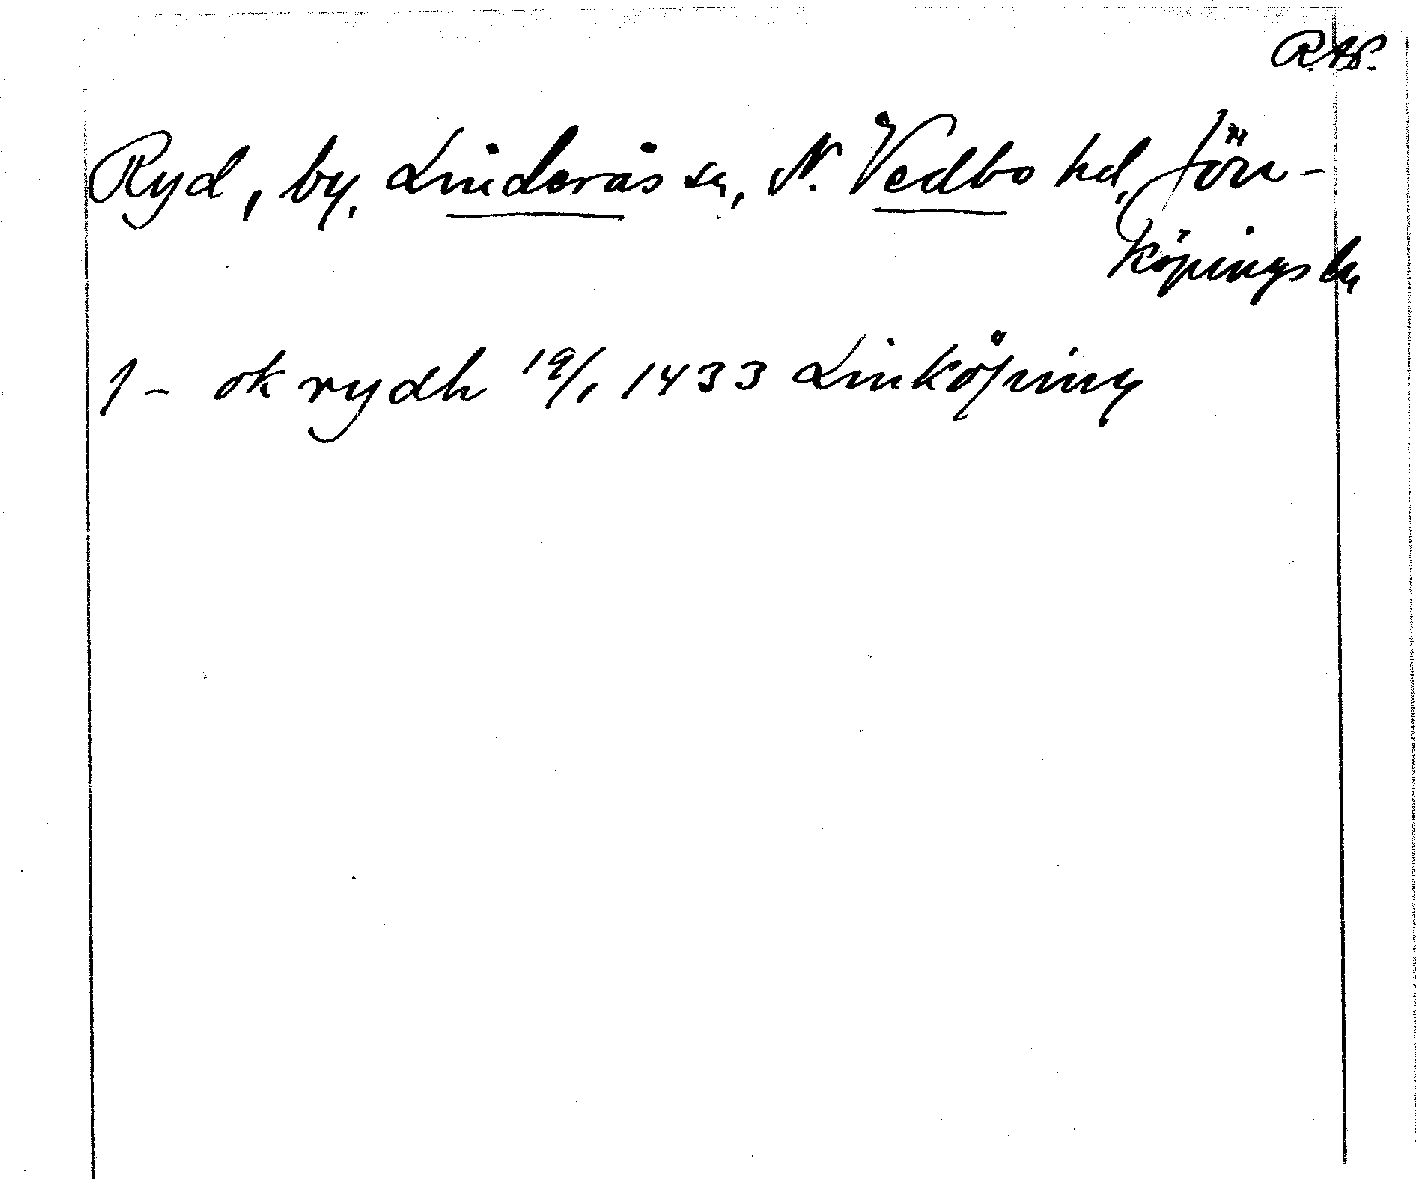 Ryd, by, Linderås sn, N. Vedbo hd, Jön-
köpings ln
1 - ok rydh 19/1 1433 Linköping